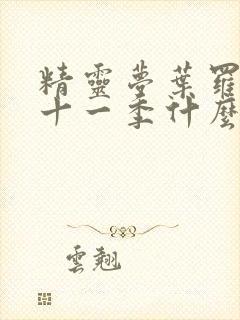 精靈夢葉羅
十一季什麼
雲翹